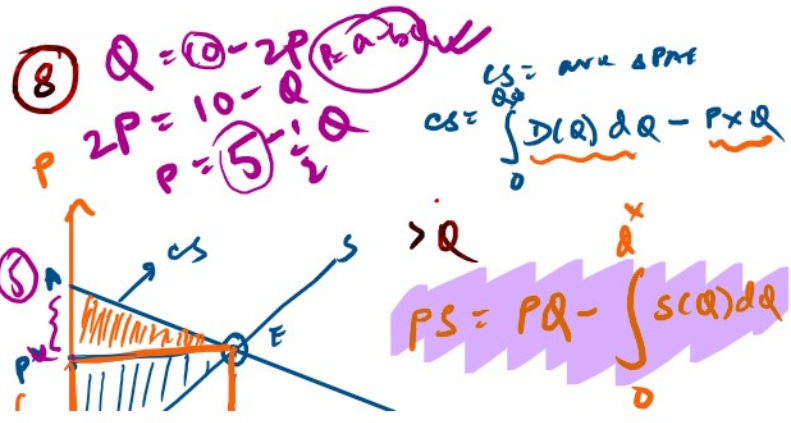 8
Q = 10 - 2P
P = a - bQ
2P = 10 - Q
P = 5 - 1/2 Q
CS = area Δ PAE
CS = ∫₀^Q* D(Q) dQ - P×Q
P
5
A
CS
S
E
P*
> Q
PS = PQ - ∫₀^Q* S(Q)dQ